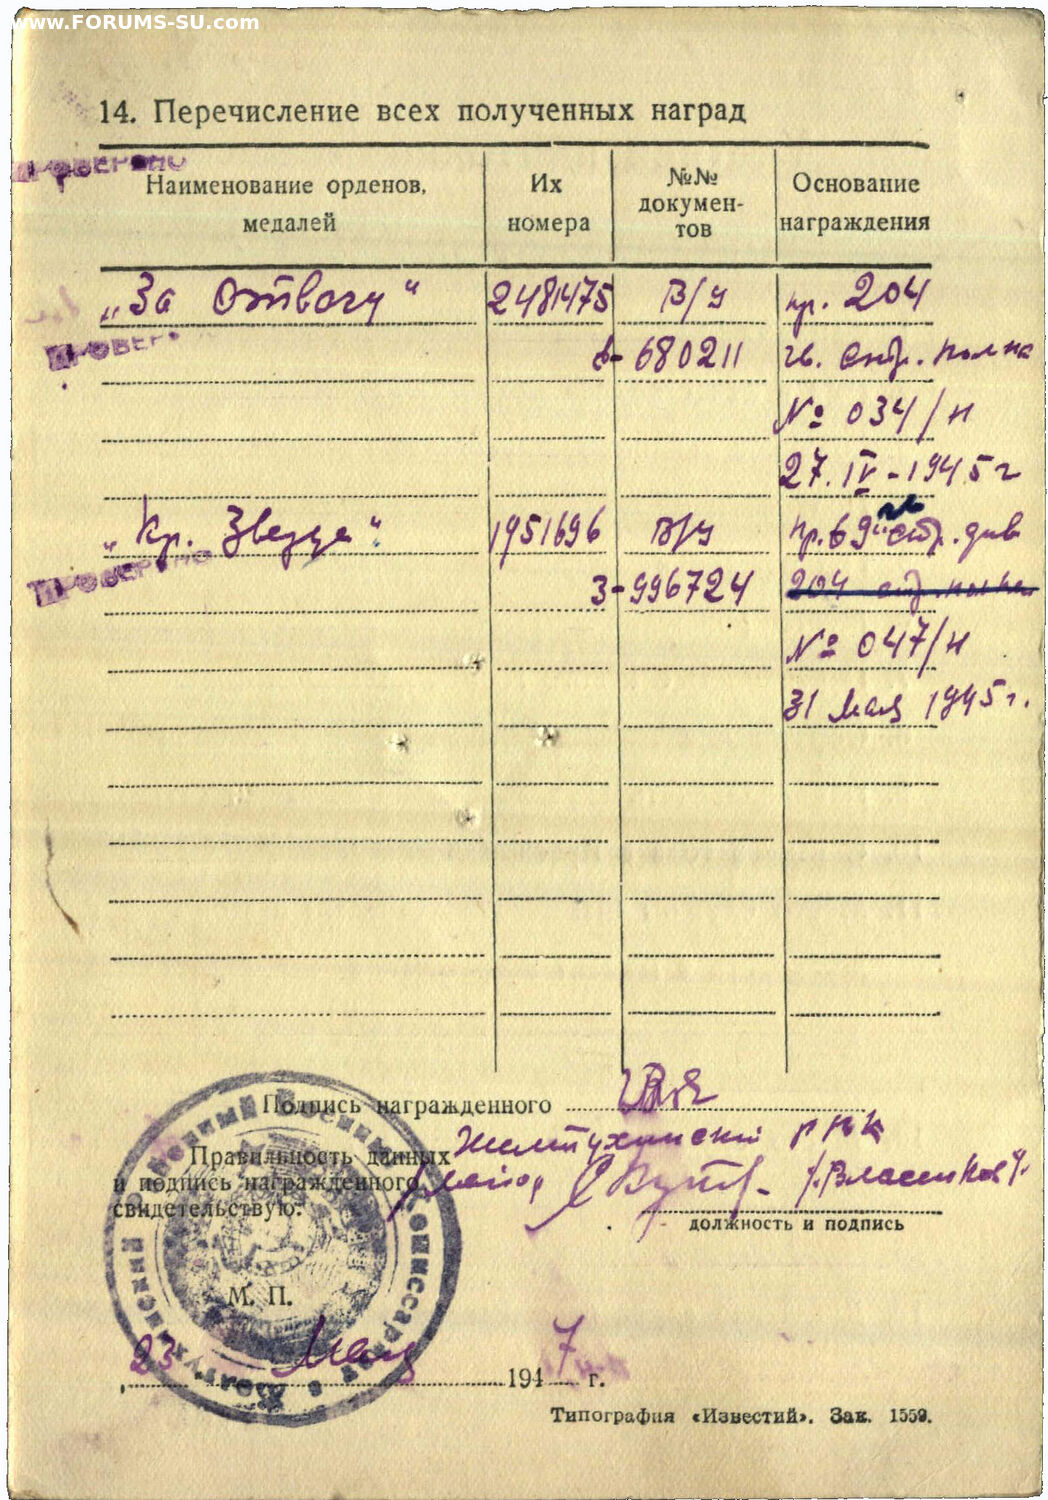 www.FORUMS-SU.com
14. Перечисление всех полученных наград
ПРОВЕРЕНО
Наименование орденов, медалей
Их номера
№№ документов
Основание награждения
„За Отвагу“ 2481475 В/у пр. 204
ПРОВЕРЕНО
в-680211 гв. стр. полка
№ 034/н
27.IV-1945 г
„Кр. Звезда“ 1951696 В/у пр. 69 гв стр. див
ПРОВЕРЕНО
З-996724 204 стр. полка
№ 047/н
31 мая 1945 г.
Подпись награжденного
Желтухинский РВК
Правильность данных
и подпись награжденного
свидетельствую:
майор /Власенков/
должность и подпись
М. П.
23 мая 1947 г.
Типография «Известий». Зак. 1559.